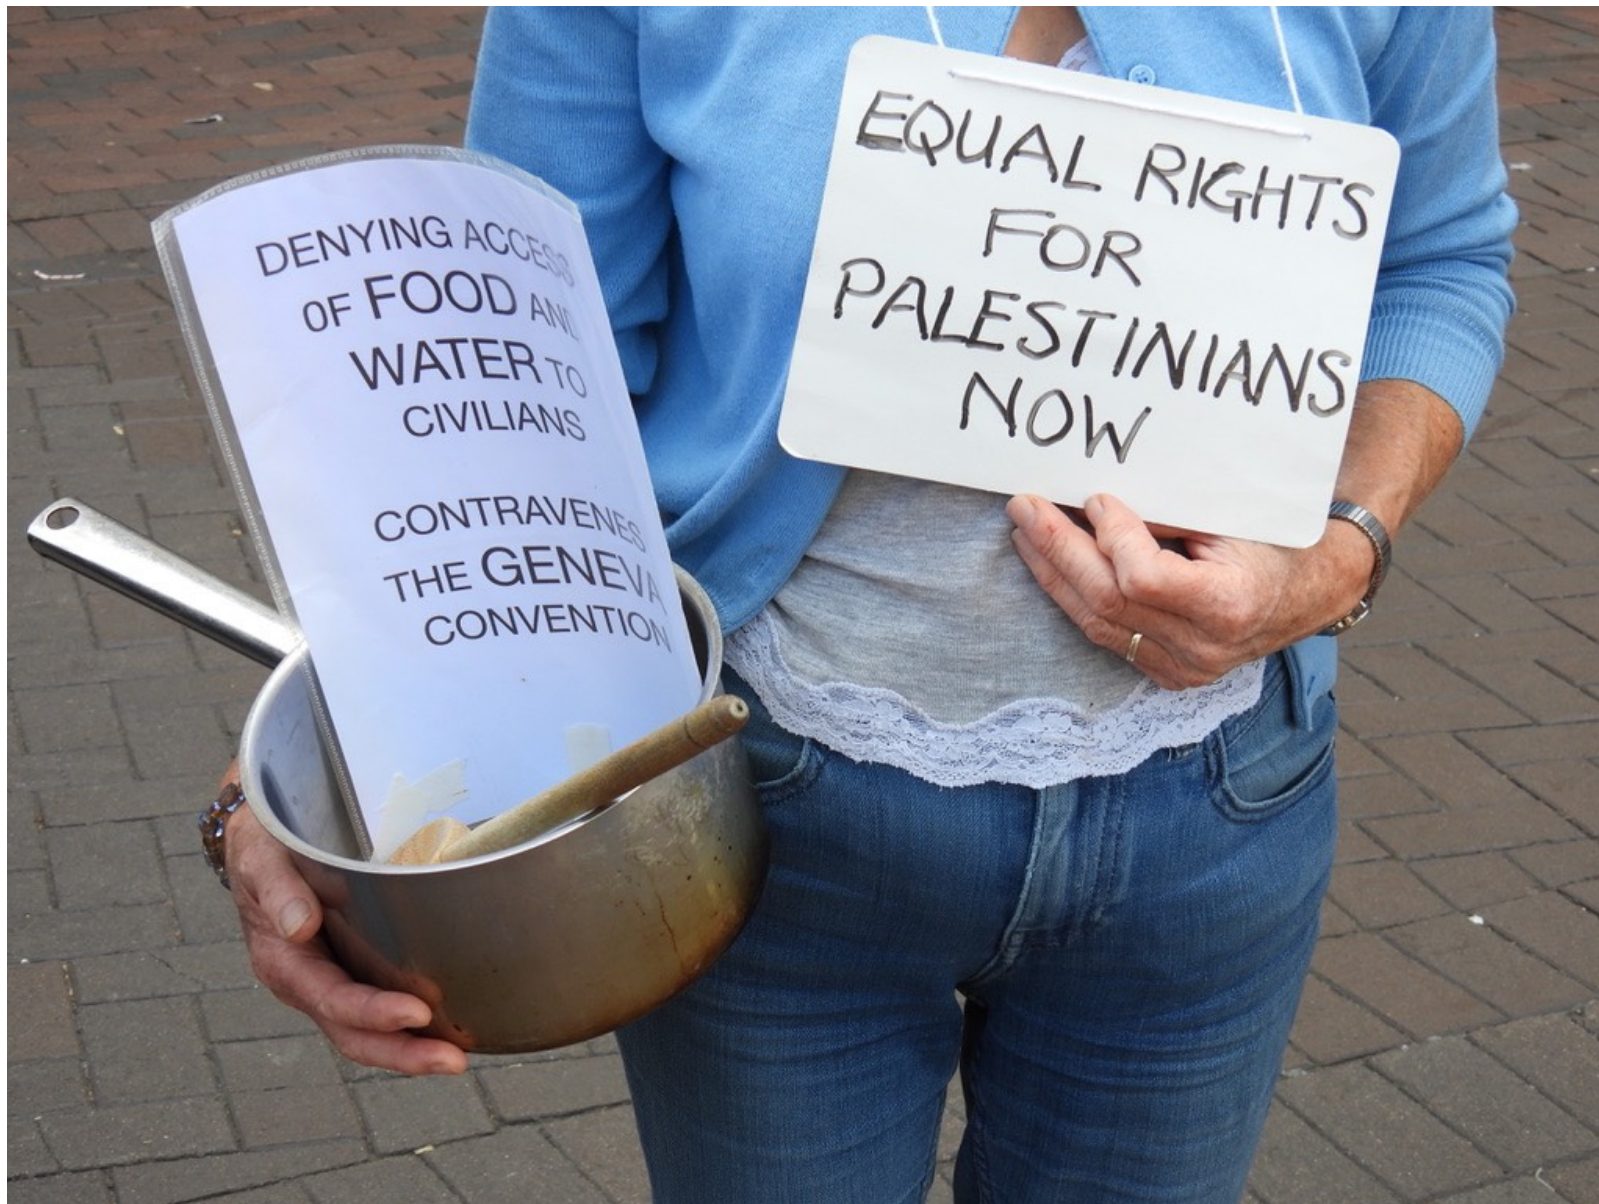 DENYING ACCESS
OF FOOD AND
WATER TO
CIVILIANS
CONTRAVENES
THE GENEVA
CONVENTION
EQUAL RIGHTS
FOR
PALESTINIANS
NOW